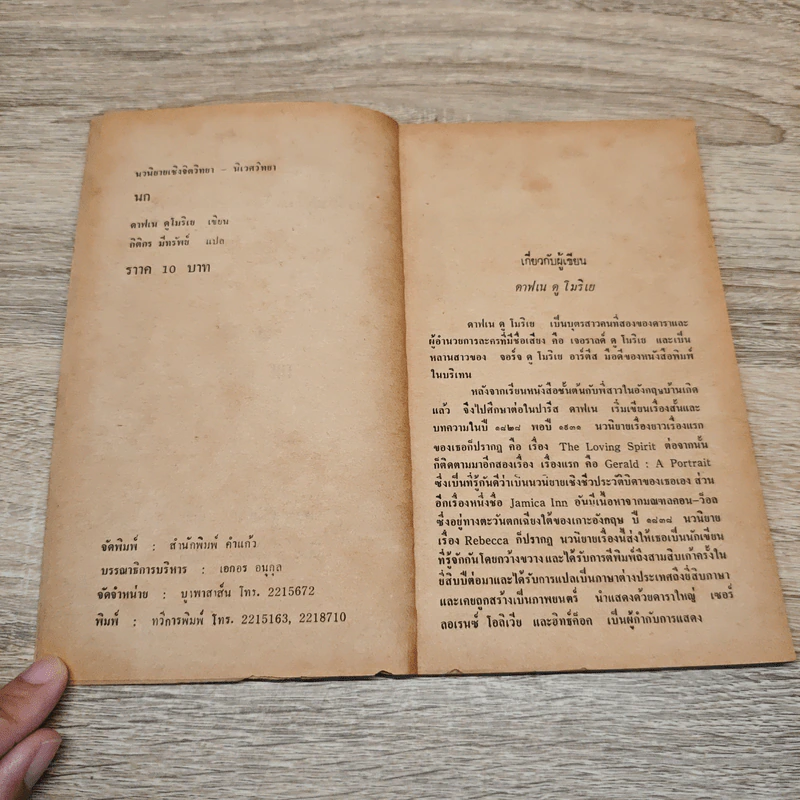 นวนิยายเชิงจิตวิทยา - นิเวศวิทยา
นก
ดาฟเน ดูโมริเย เขียน
กิติกร มีทรัพย์ แปล
ราาค 10 บาท
จัดพิมพ์ : สำนักพิมพ์ คำแก้ว
บรรณาธิการบริหาร : เอกอร อนุกูล
จัดจำหน่าย : บูรพาสาส์น โทร. 2215672
พิมพ์ : ทวีการพิมพ์ โทร. 2215163, 2218710
เกี่ยวกับผู้เขียน
ดาฟเน ดู โมริเย
ดาฟเน ดู โมริเย เป็นบุตรสาวคนที่สองของดาราและ
ผู้อำนวยการละครที่มีชื่อเสียง คือ เจอราลด์ ดู โมริเย และเป็น
หลานสาวของ จอร์จ ดู โมริเย อาร์ตีส มือดีของหนังสือพิมพ์
ในบริเทน
หลังจากเรียนหนังสือชั้นต้นกับพี่สาวในอังกฤษบ้านเกิด
แล้ว จึงไปศึกษาต่อในปารีส ดาฟเน เริ่มเขียนเรื่องสั้นและ
บทความในปี ๑๙๒๘ พอปี ๑๙๓๑ นวนิยายเรื่องยาวเรื่องแรก
ของเธอก็ปรากฏ คือ เรื่อง The Loving Spirit ต่อจากนั้น
ก็ติดตามมาอีกสองเรื่อง เรื่องแรก คือ Gerald : A Portrait
ซึ่งเป็นที่รู้กันดีว่าเป็นนวนิยายเชิงชีวประวัติบิดาของเธอเอง ส่วน
อีกเรื่องหนึ่งชื่อ Jamica Inn อันมีเนื้อหาจากมณฑลคอน-ว็อล
ซึ่งอยู่ทางตะวันตกเฉียงใต้ของเกาะอังกฤษ ปี ๑๙๓๘ นวนิยาย
เรื่อง Rebecca ก็ปรากฏ นวนิยายเรื่องนี้ส่งให้เธอเป็นนักเขียน
ที่รู้จักกันโดยกว้างขวาง และได้รับการตีพิมพ์ถึงสามสิบเก้าครั้งใน
ยี่สิบปีต่อมาและได้รับการแปลเป็นภาษาต่างประเทศถึงยี่สิบภาษา
และเคยถูกสร้างเป็นภาพยนตร์ นำแสดงด้วยดาราใหญ่ เซอร์
ลอเรนซ์ โอลิเวีย และฮิทช์ค็อก เป็นผู้กำกับการแสดง